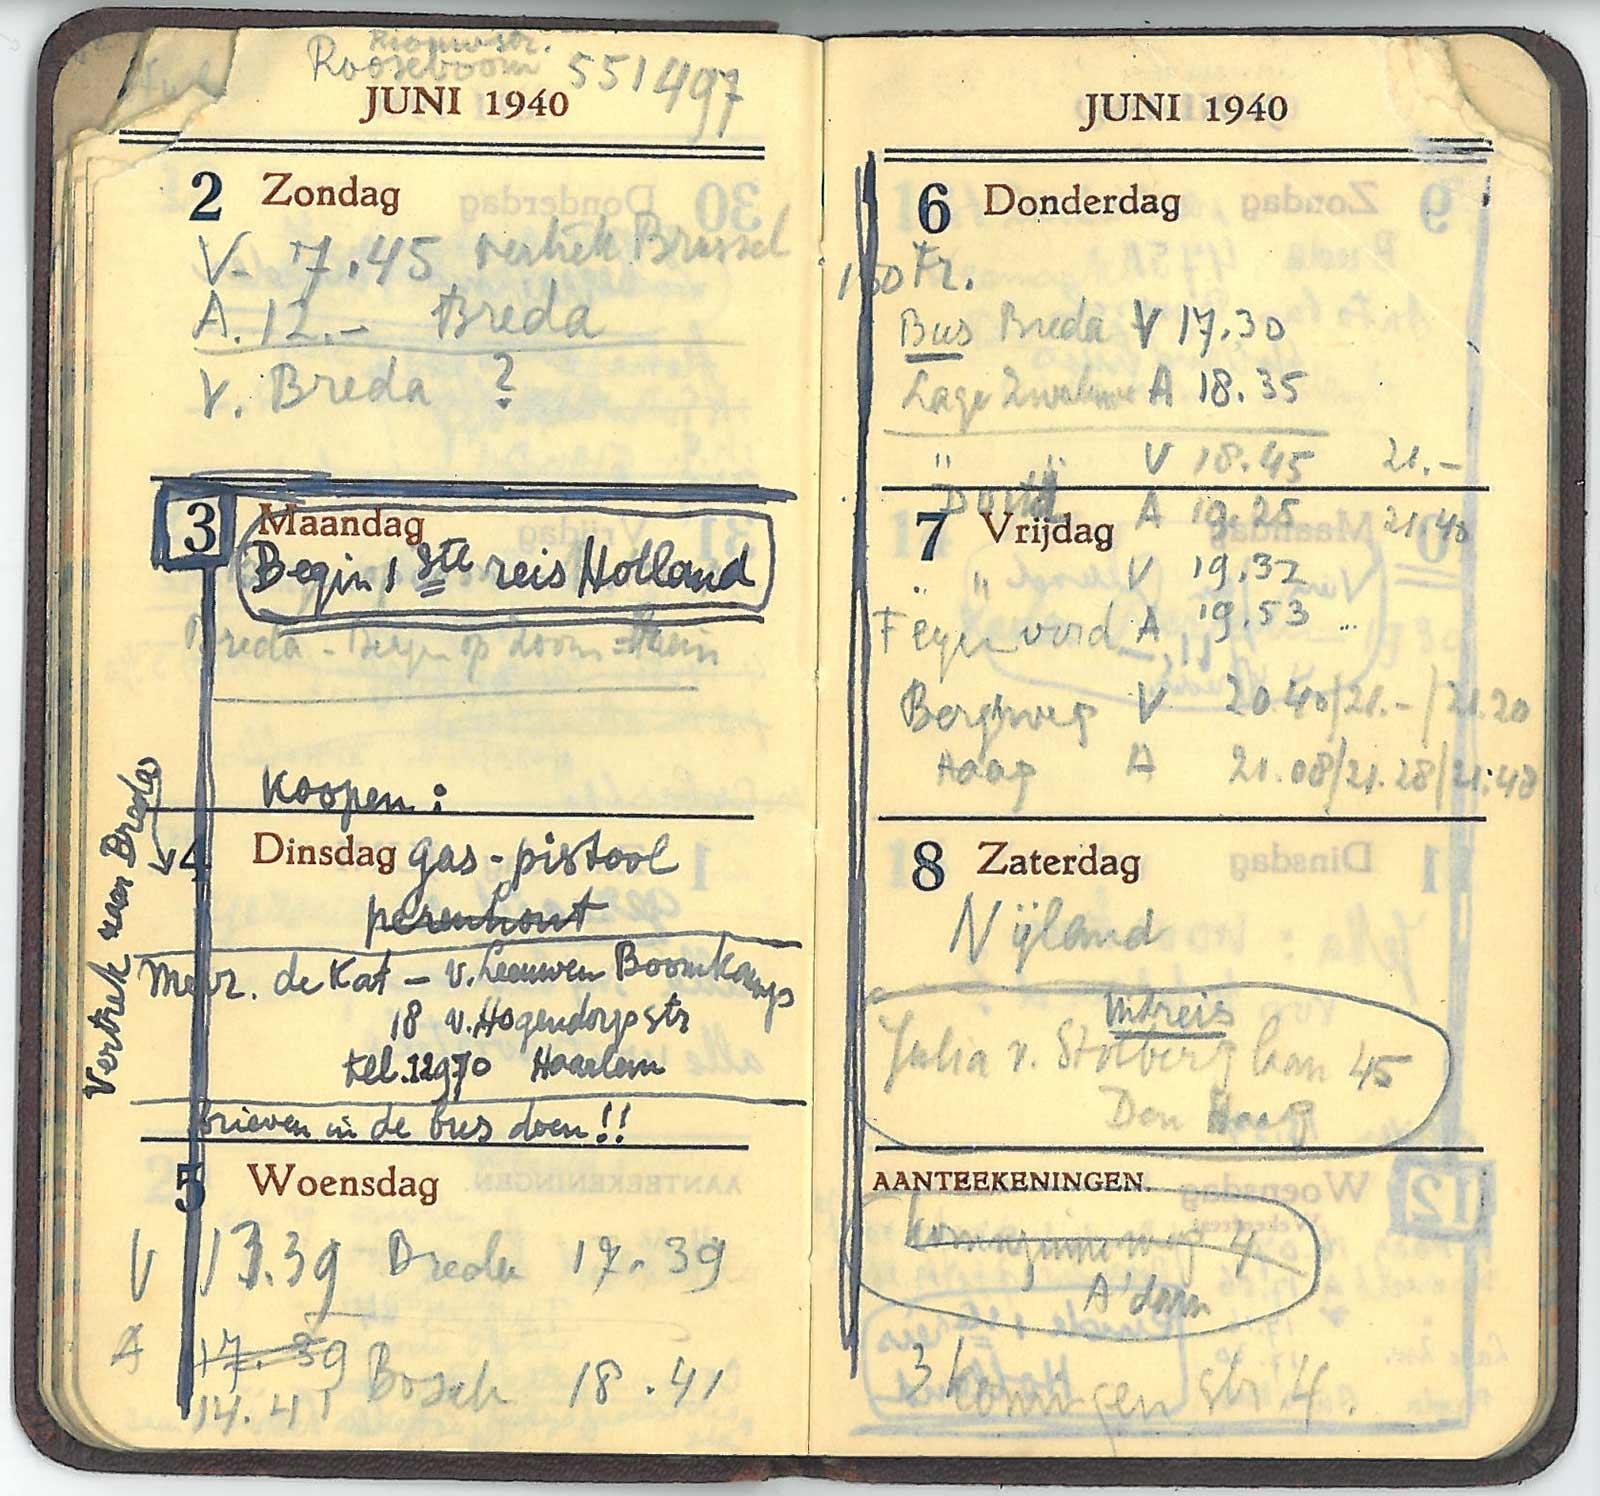 Riouwstr.
Rooseboom 551497
JUNI 1940
2 Zondag
V- 7.45 vertrek Brussel
A. 12.- Breda
V. Breda ?
3 Maandag
Begin 1ste reis Holland
Breda - Bergen op Zoom
Koopen:
4 Dinsdag gas-pistool
perenhout
Mevr. de Kat - v. Leeuwen Boomkamp
18 v. Hogendorpstr
tel. 12970 Haarlem
brieven in de bus doen!!
Vertrek naar Breda
5 Woensdag
V 13.39 Breda 17.39
A 17.39
14.41 Bosch 18.41
JUNI 1940
6 Donderdag
150 Fr.
Bus Breda V 17.30
Lage Zwaluwe A 18.35
" " V 18.45 21.-
Dordt A 19.25 21.40
7 Vrijdag
" " V 19.32
Feyenoord A 19.53
Bergweg V 20.40/21.-/21.20
Haag A 21.08/21.28/21.48
8 Zaterdag
Nijland
Intreis
Julia v. Stolberglaan 45
Den Haag
AANTEEKENINGEN.
4
A'dam
3 Koningenstr 4.